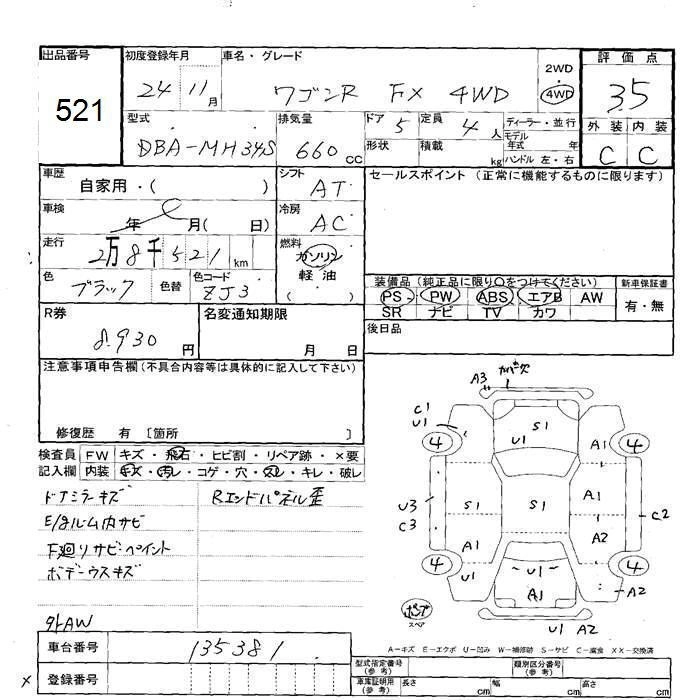 出品番号 初度登録年月 車名・グレード 2WD 評価点
521 24 11月 ワゴンR FX 4WD ・ 4WD 3.5
型式 排気量 ドア 定員 ディーラー・並行 外装 内装
DBA-MH34S 660cc 5 4人 モデル年式 年 C C
形状 積載 kg ハンドル 左・右
車歴 シフト セールスポイント (正常に機能するものに限ります)
自家用・( ) AT
車検 冷房
年 月( 日) AC
走行 燃料
2万8千521km ガソリン
軽油
( )
色 色替 色コード 装備品 (純正品に限り○をつけてください) 新車保証書
ブラック ZJ3 PS PW ABS エアB AW 有・無
SR ナビ TV カワ
R券 名変通知期限 後日品
8,930円 月 日
注意事項申告欄(不具合内容等は具体的に記入して下さい)
修復歴 有 [箇所 ]
検査員 FW キズ・飛石・ヒビ割・リペア跡・×要
記入欄 内装 キズ・汚レ・コゲ・穴・スレ・キレ・破レ
ドアミラーキズ Rエンドパネル歪
E/gルーム内サビ
F廻りサビ・ペイント
ボデーウスキズ
外AW
A3 カバー欠
C1
U1
4 S1 4
U1 A1
U3 S1 S1 A1 C2
C3
A1 A2
4 U1 U1 4
A1 A2
スペア
U1 A2
A-キズ E-エクボ U-凹み W-補修跡 S-サビ C-腐食 XX-交換済
車台番号 135381 型式指定番号(参考) 類別区分番号(参考)
× 登録番号 車庫証明用(参考) 長さ cm 幅 cm 高さ cm